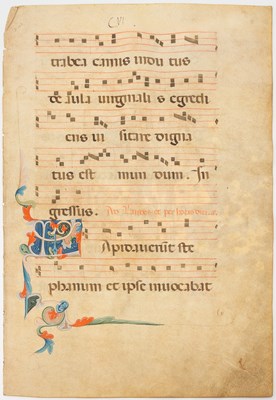 CVI
trabea carnis indu tus
de aula virginali s egredi
ens vi sitare digna
tus est mun dum. In
gressus. Ad
Lapidaverunt ste
phanum et ipse invocabat